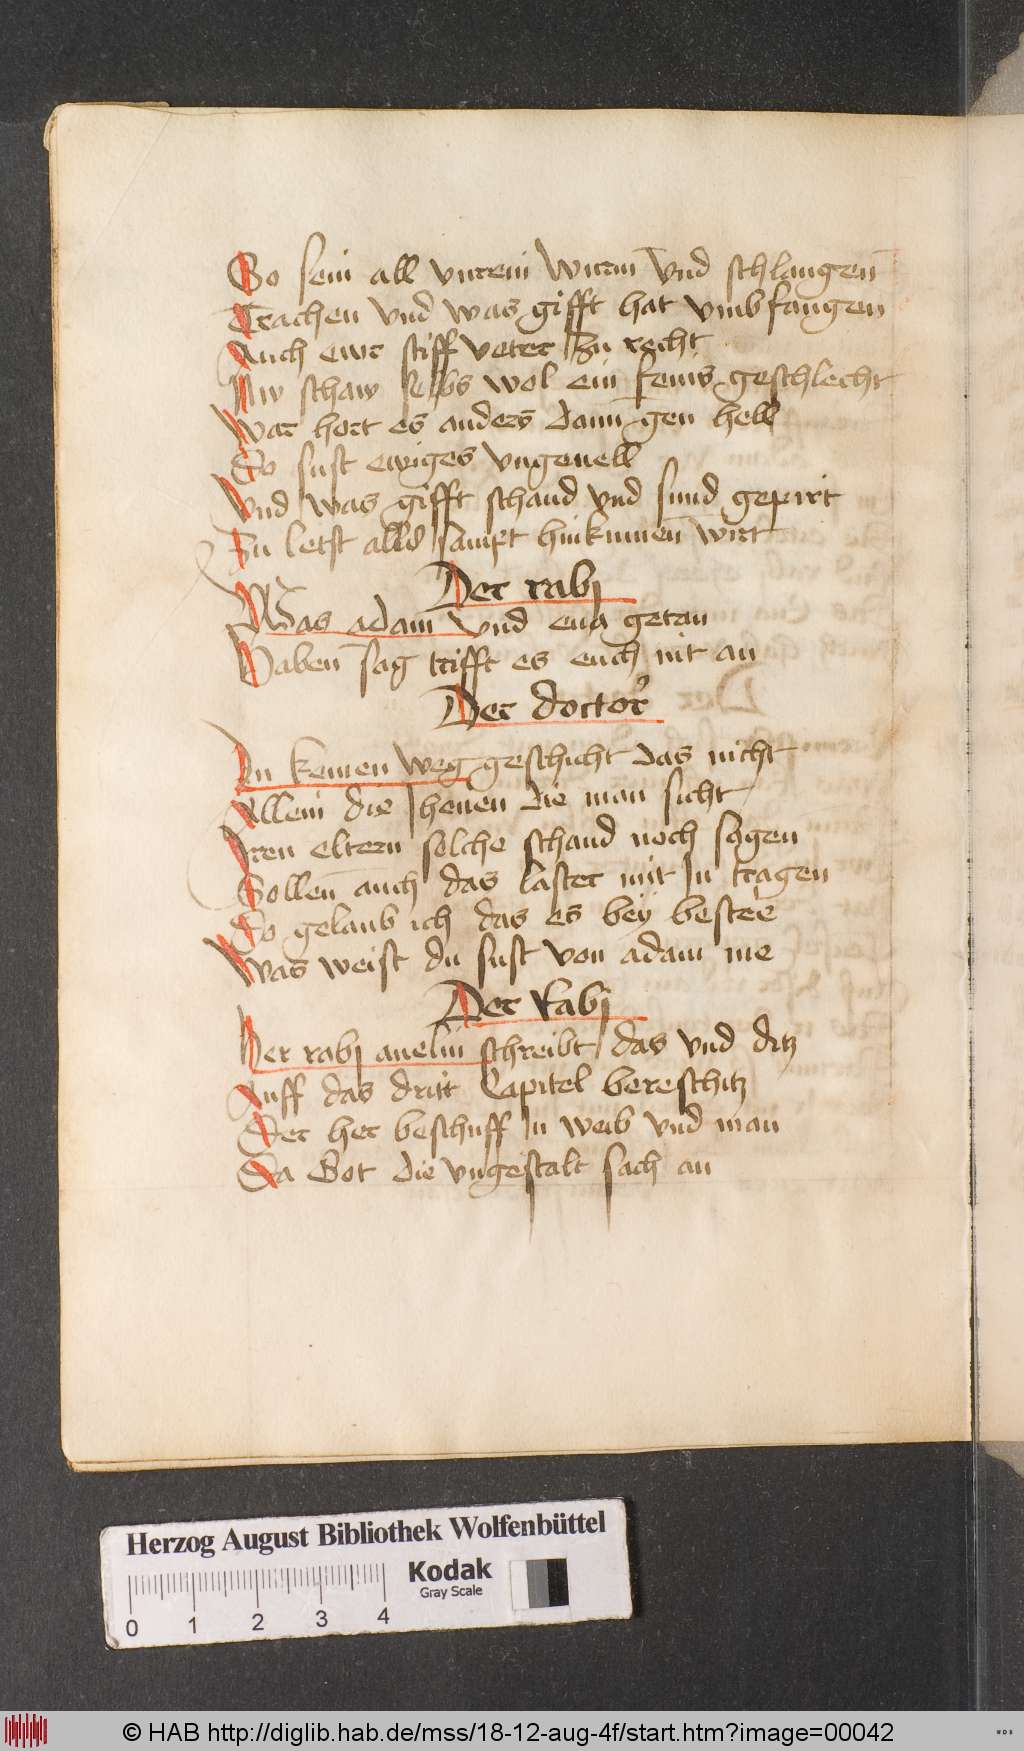 So sein all vnrein wurm vnd schlangen
Trachen vnd was gifft hat vmbfangen
Auch ewr stiff veter zu recht
Nw schaw selbs wol ein feins geschlecht
War hort es anders dann gen hell
Do sust ewiges vngeuell
Vnd was gifft schand vnd sund gepirt
Zu letst alld sampt hinkumen wirt
Der rabj
Was adam vnd eua getan
Haben sag trifft es euch nit an
Der doctor
In keinen weg geschicht das nicht
Allein die Jhenen die man sicht
Iren eltern solche schand noch sagen
Sollen auch das laster mit In tragen
So gelaub ich das es bey bestee
Was weist du sust von adam me
Der Rabj
Der rabj auelin schreibt das vnd ditz
Auff das dritt Capitel bereschitz
Der her beschuff In weib vnd man
Da Got die vngestalt sach an
Herzog August Bibliothek Wolfenbüttel
Kodak
Gray Scale
0 1 2 3 4
© HAB http://diglib.hab.de/mss/18-12-aug-4f/start.htm?image=00042